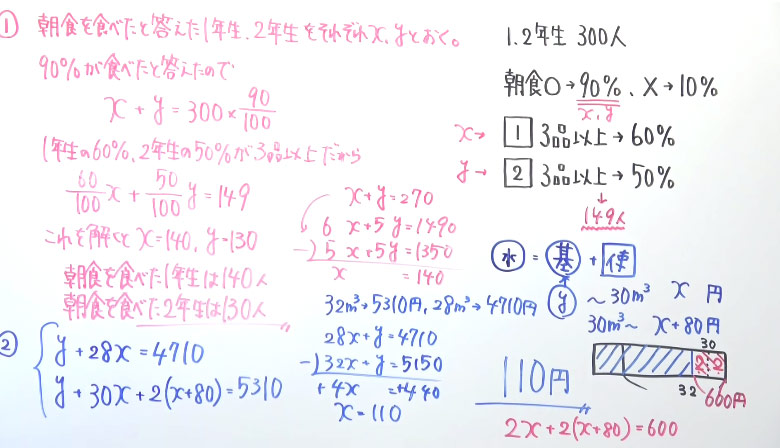 ① 朝食を食べたと答えた1年生、2年生をそれぞれx、yとおく。
90%が食べたと答えたので
x + y = 300 × 90/100
1年生の60%、2年生の50%が3品以上だから
60/100 x + 50/100 y = 149
これを解くと x = 140, y = 130
朝食を食べた1年生は140人
朝食を食べた2年生は130人
x + y = 270
6x + 5y = 1490
-) 5x + 5y = 1350
x = 140
1.2年生 300人
朝食○→90%、×→10%
x, y
x→ 1 3品以上→60%
y→ 2 3品以上→50%
↓
149人
② y + 28x = 4710
y + 30x + 2(x+80) = 5310
32m³→5310円, 28m³→4710円
28x + y = 4710
-) 32x + y = 5150
+4x = +440
x = 110
110円
水 = 基 + 使
y
~30m³ x 円
30m³~ x+80円
30
2 2
32
600円
2x + 2(x+80) = 600